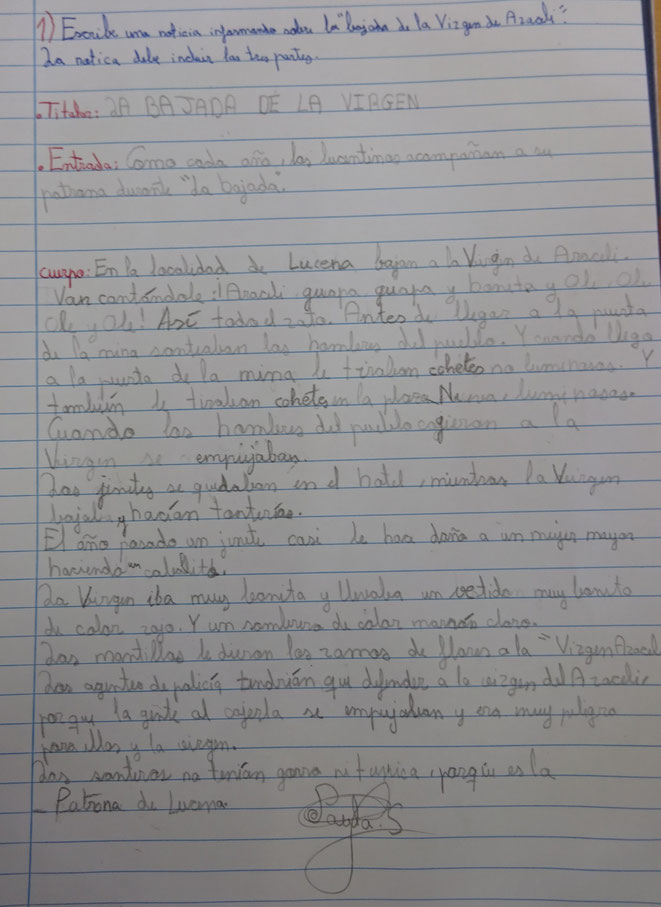 1) Escribe una noticia informando sobre la "bajada de la Virgen de Araceli".
La noticia debe incluir las tres partes.
. Titular: LA BAJADA DE LA VIRGEN
. Entrada: Como cada año, los lucentinos acompañan a su
patrona durante "La bajada".
cuerpo: En la localidad de Lucena bajan a la Virgen de Araceli.
Van cantándole: ¡Araceli guapa, guapa y bonita y Ole, Ole
Ole y Ole! Así todo el rato. Antes de llegar a la punta
de la mina santeaban los hombres del pueblo. Y cuando llego
a la punta de la mina le tiraban cohetes no luminosos. Y
también le tiraban cohetes en la plaza Nueva luminosos.
Cuando los hombres del pueblo cogieron a la
Virgen se empujaban.
Los jinetes se quedaban en el hotel, mientras la Virgen
bajaba y hacían tonterías.
El año pasado un jinete casi le hace daño a un mujer mayor
haciendo un caballito.
La Virgen iba muy bonita y llevaba un vestido muy bonito
de color rojo. Y un sombrero de color marrón claro.
Las mantillas le dieron los ramos de flores a la "Virgen Araceli
Los agentes de policía tendrían que defender a la virgen del Araceli,
porque la gente al cojerla se empujaban y era muy peligro
para ellos y la virgen.
Los santeros no tenían gorro ni tunica, porque es la
- Patrona de Lucena.